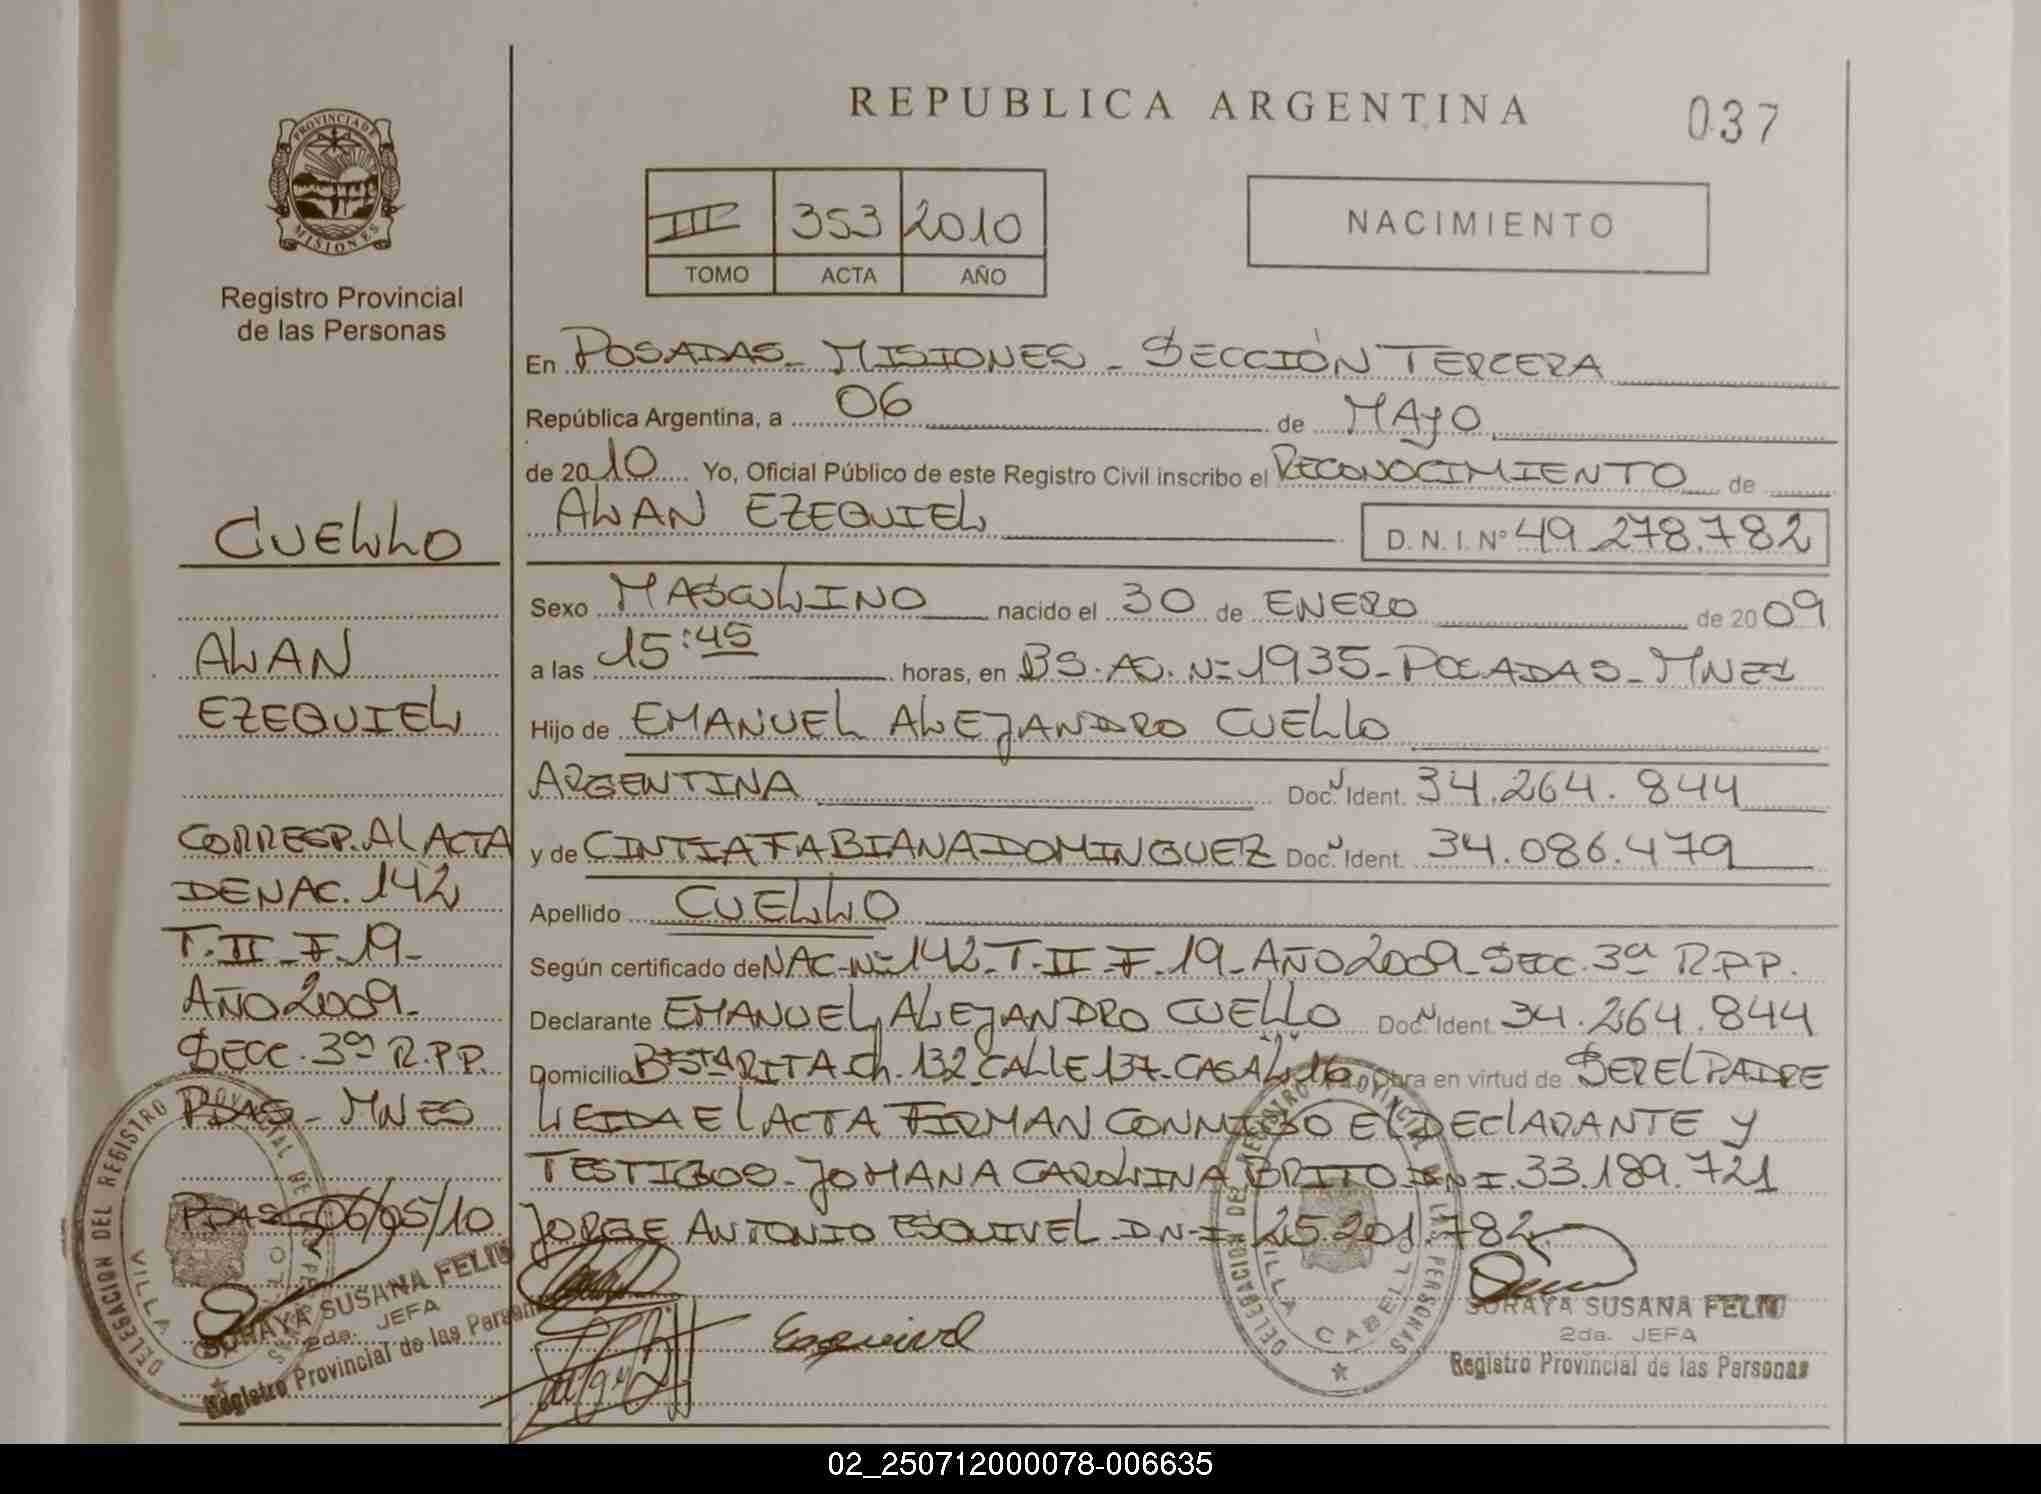 REPUBLICA ARGENTINA
037
PROVINCIA DE
MISIONES
Registro Provincial
de las Personas
III 353 2010
TOMO ACTA AÑO
NACIMIENTO
En POSADAS - MISIONES - SECCIÓN TERCERA
República Argentina, a 06 de MAYO
de 2010 Yo, Oficial Público de este Registro Civil inscribo el RECONOCIMIENTO de
ALAN EZEQUIEL
D. N. I. Nº 49.278.782
Sexo MASCULINO nacido el 30 de ENERO de 2009
a las 15:45 horas, en BS. AS. Nº 1935 - POSADAS - MNES
Hijo de EMANUEL ALEJANDRO CUELLO
ARGENTINA Doc. Ident. 34.264.844
y de CINTIA FABIANA DOMINGUEZ Doc. Ident. 34.086.479
Apellido CUELLO
Según certificado de NAC. Nº 142 - T. II - F. 19 - AÑO 2009 - SECC. 3ª R.P.P.
Declarante EMANUEL ALEJANDRO CUELLO Doc. Ident. 34.264.844
Domicilio Bº STA RITA - Ch. 132 - CALLE 137 - CASA 16 Obra en virtud de SER EL PADRE
LEIDA EL ACTA FIRMAN CONMIGO EL DECLARANTE Y
TESTIGOS - JOHANA CAROLINA BRITO DNI. 33.189.721
JORGE ANTONIO ESQUIVEL D.N.I 25.201.782
Esquivel
DELEGACION DEL REGISTRO PROVINCIAL DE LAS PERSONAS
VILLA CABELLO
SORAYA SUSANA FELIU
2da. JEFA
Registro Provincial de las Personas
CUELLO
ALAN
EZEQUIEL
CORRESP. AL ACTA
DE NAC. 142
T. II - F. 19 -
AÑO 2009 -
SECC. 3ª R.P.P.
PDAS - MNES
PDAS - 06/05/10
DELEGACION DEL REGISTRO PROVINCIAL DE
VILLA
SORAYA SUSANA FELIU
2da. JEFA
Registro Provincial de las Personas
02_250712000078-006635